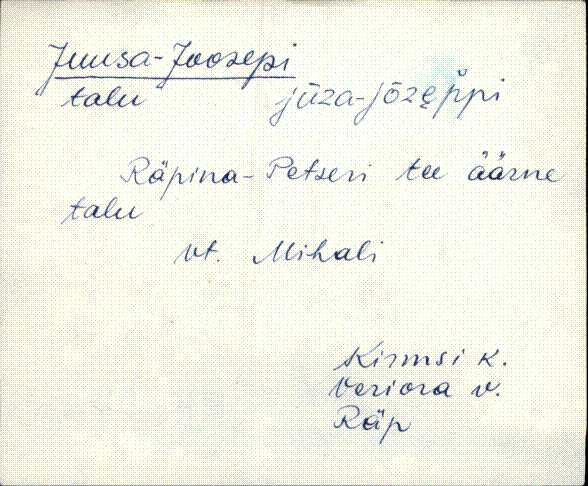 Juusa-Joosepi
talu jūza-jōzeppi
Räpina-Petseri tee äärne
talu
vt. Mihali
Kirmsi k.
Veriora v.
Räp